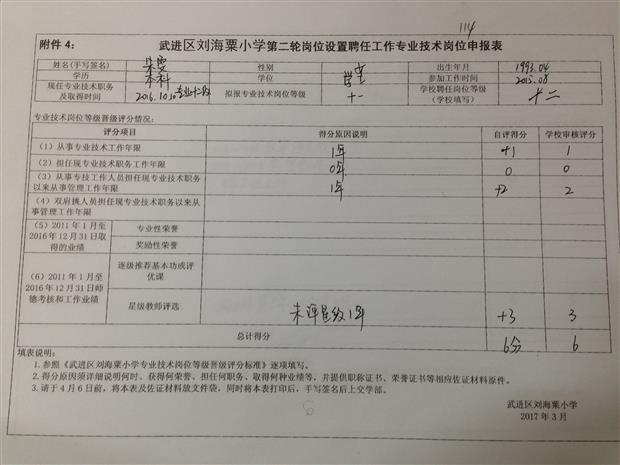 114
附件 4：
武进区刘海粟小学第二轮岗位设置聘任工作专业技术岗位申报表
姓名(手写签名) 性别 女 出生年月 1993.04
学历 本科 学位 参加工作时间 2015.08
现任专业技术职务及取得时间 2016.10 拟报专业技术岗位等级 十一 学校聘任岗位等级（学校填写） 十二
专业技术岗位等级晋级评分情况：
评分项目 得分原因说明 自评得分 学校审核评分
（1）从事专业技术工作年限 1年 +1 1
（2）担任现专业技术职务工作年限 0年 0 0
（3）从事专技工作人员担任现专业技术职务以来从事管理工作年限 1年 +2 2
（4）双肩挑人员担任现专业技术职务以来从事管理工作年限
（5）2011 年 1 月至 2016 年 12 月 31 日取得的业绩 专业性荣誉
奖励性荣誉
（6）2011 年 1 月至 2016 年 12 月 31 日师德考核和工作业绩 逐级推荐基本功或评优课
星级教师评选 未评星级1年 +3 3
总计得分 6分 6
填表说明：
1. 参照《武进区刘海粟小学专业技术岗位等级晋级评分标准》逐项填写。
2. 得分原因须详细说明何时、获得何荣誉、担任何职务、取得何种业绩等，并提供职称证书、荣誉证书等相应佐证材料原件。
3. 请于 4 月 6 日前，将本表及佐证材料放文件袋，同时将本表打印后，手写签名后上交学部。
武进区刘海粟小学
2017 年 3 月